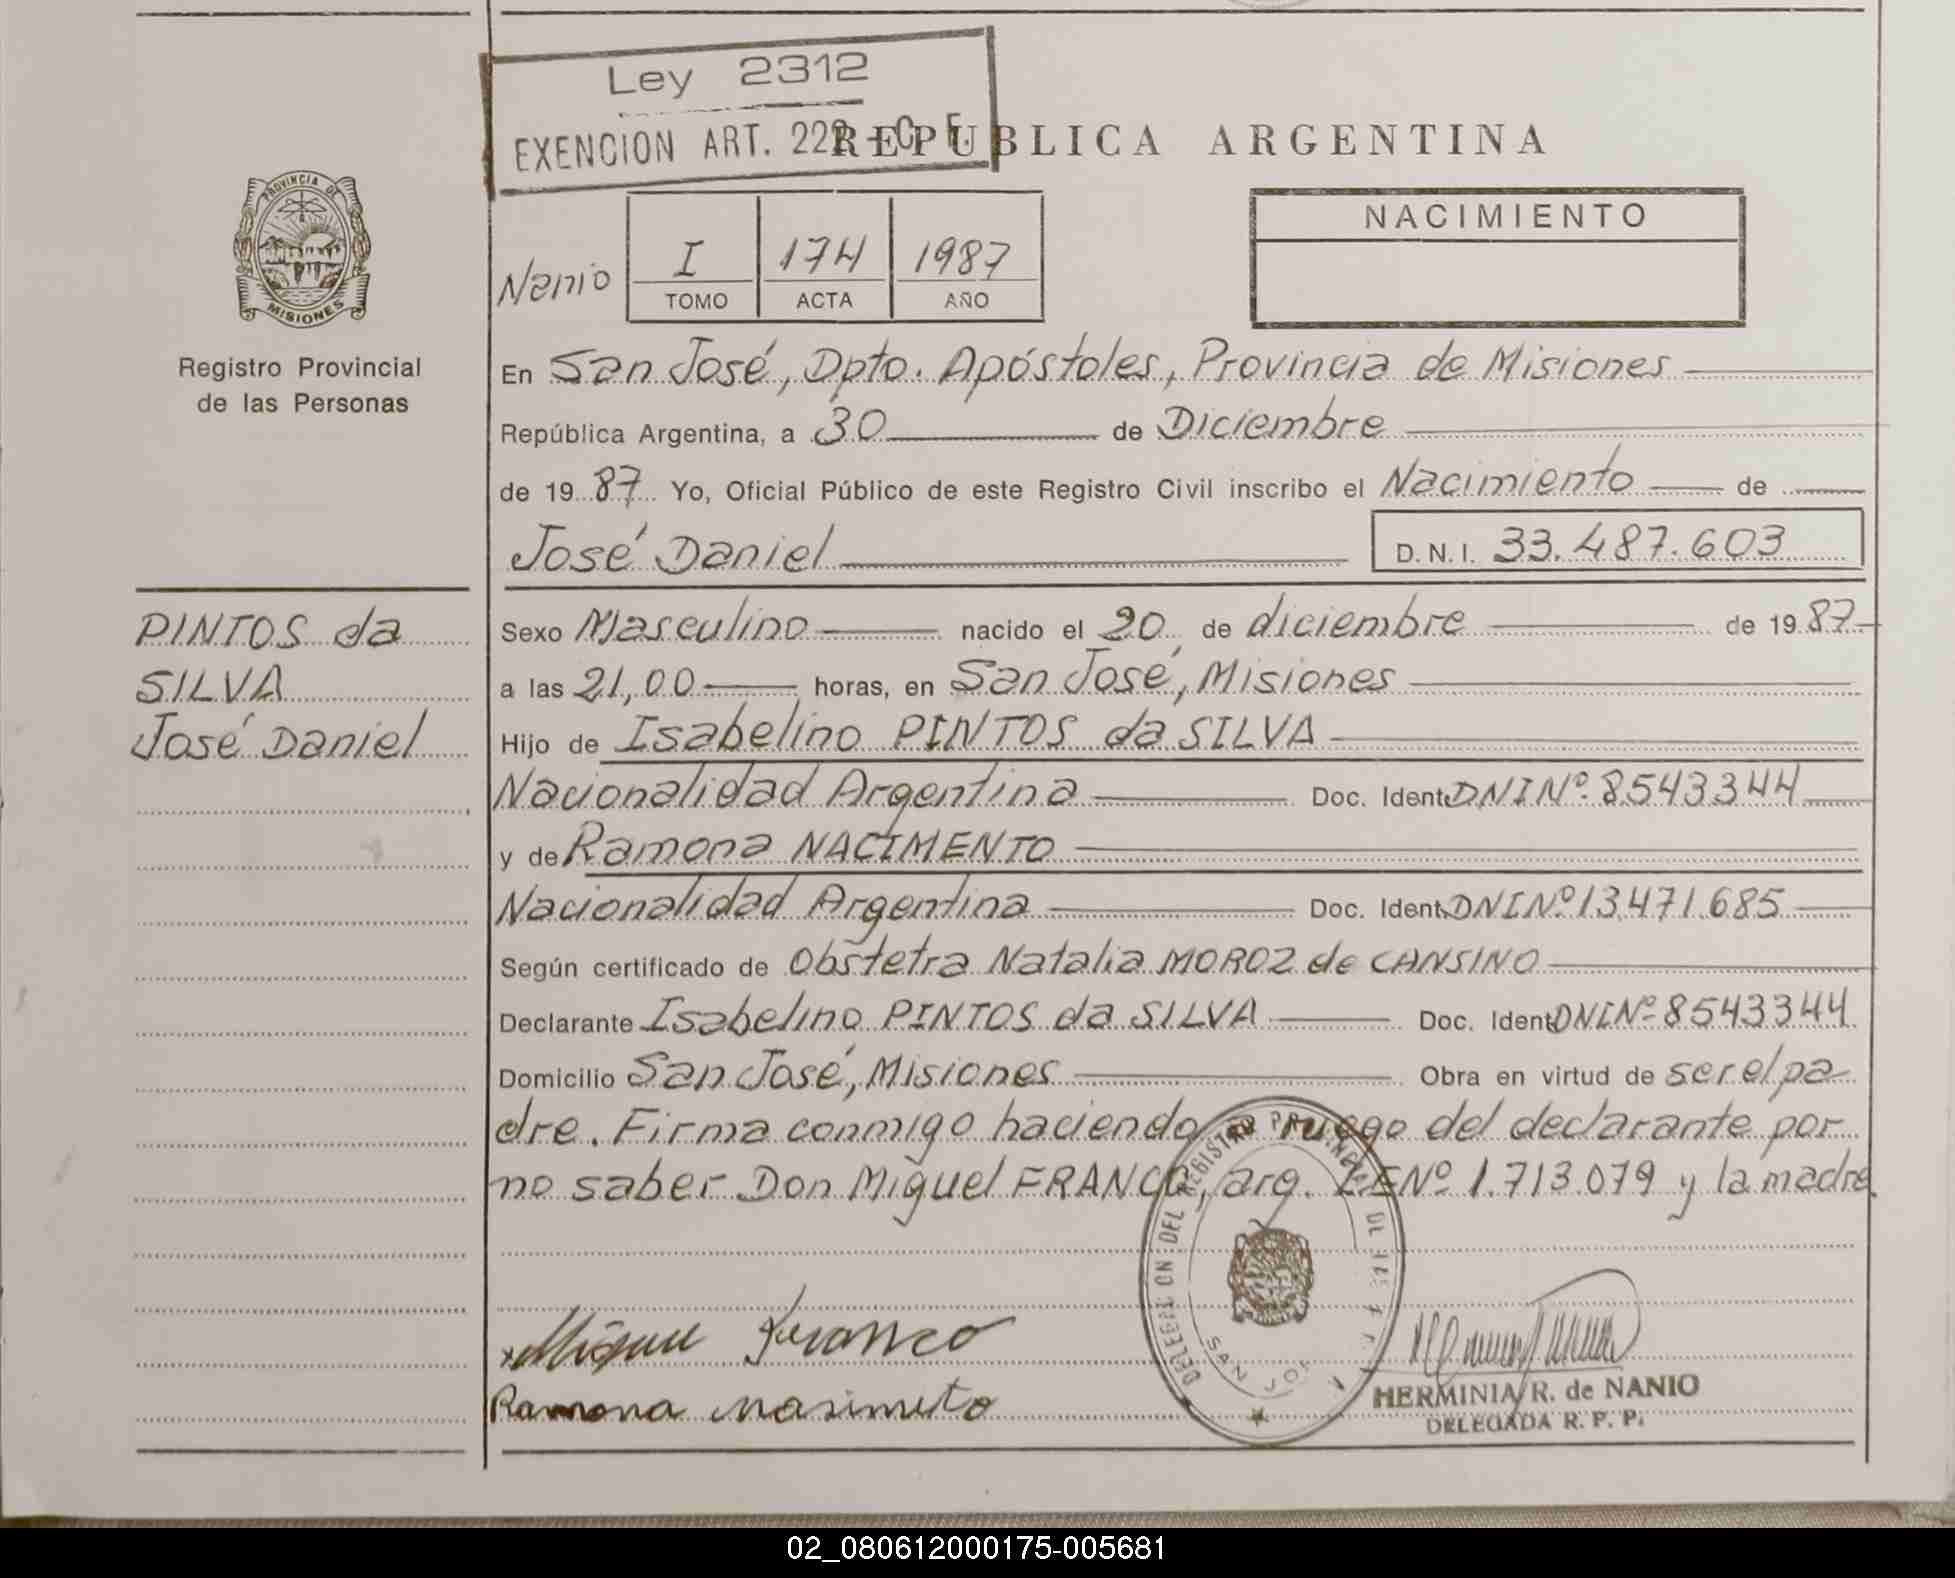 Ley 2312
EXENCION ART. 222 - C. F.
REPUBLICA ARGENTINA
PROVINCIA DE
MISIONES
Registro Provincial
de las Personas
NACIMIENTO
Nanio
I 174 1987
TOMO ACTA AÑO
En San José, Dpto. Apóstoles, Provincia de Misiones
República Argentina, a 30 de Diciembre
de 1987 Yo, Oficial Público de este Registro Civil inscribo el Nacimiento de
José Daniel D.N.I. 33.487.603
PINTOS da
SILVA
José Daniel
Sexo Masculino nacido el 20 de diciembre de 1987
a las 21,00 horas, en San José, Misiones
Hijo de Isabelino PINTOS da SILVA
Nacionalidad Argentina Doc. Ident. DNI Nº 8543344
y de Ramona NACIMENTO
Nacionalidad Argentina Doc. Ident. DNI Nº 13.471.685
Según certificado de Obstetra Natalia MOROZ de CANSINO
Declarante Isabelino PINTOS da SILVA Doc. Ident. DNI Nº 8543344
Domicilio San José, Misiones Obra en virtud de ser el pa
dre. Firma conmigo haciendo a ruego del declarante por
no saber Don Miguel FRANCO, arg. LE Nº 1.713.079 y la madre.
DELEGACION DEL REGISTRO PROVINCIAL DE
SAN JOSE
Miguel Franco
Ramona Nasimeto
HERMINIA R. de NANIO
DELEGADA R. P. P.
02_080612000175-005681